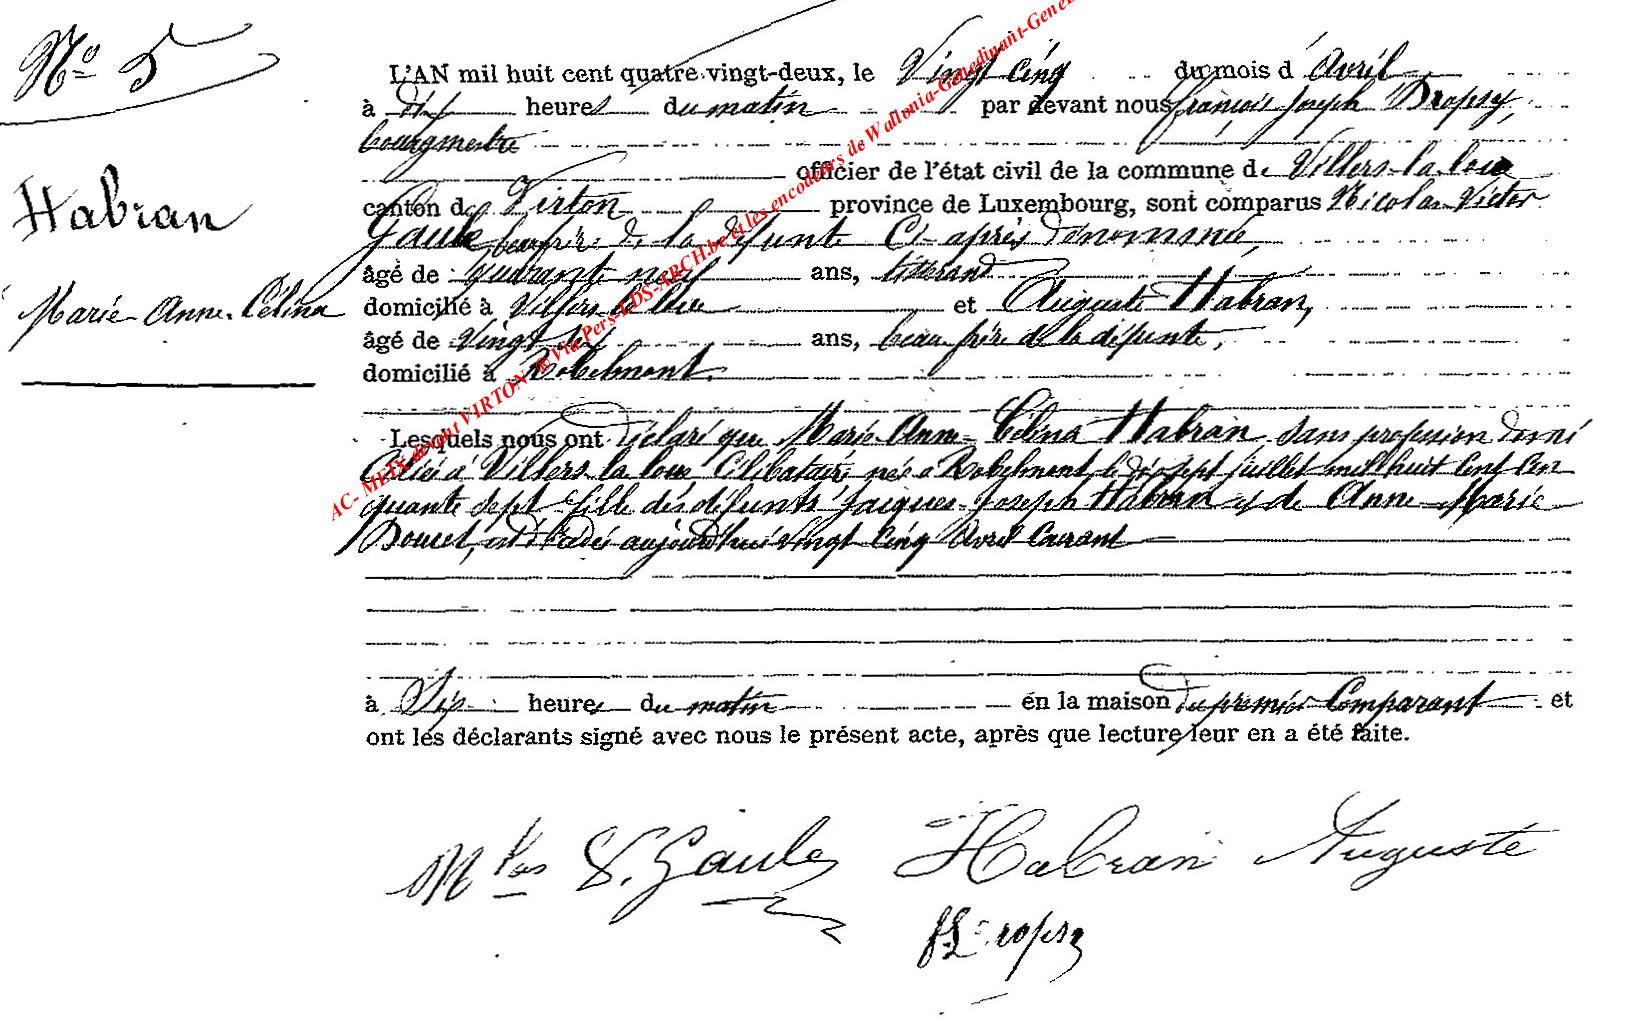 N° 5
Habran
Marie Anne Célina
L'AN mil huit cent quatre-vingt-deux, le Vingt cinq du mois d'Avril
à dix heures du matin par devant nous françois Joseph Dropsy,
bourgmestre
officier de l'état civil de la commune de Villers-la-loue
canton de Virton province de Luxembourg, sont comparus Nicolas Victor
Gaule beau frère de la défunte Ci-après dénommée,
âgé de quarante neuf ans, tisserand
domicilié à Villers la loue et Auguste Habran,
âgé de Vingt ans, beau frère de la défunte,
domicilié à Robelmont.
Lesquels nous ont déclaré que Marie Anne Célina Habran sans profession domi
ciliée à Villers la loue Célibataire née à Robelmont le dix sept juillet mil huit Cent Cin
quante sept fille des défunts Jacques Joseph Habran et de Anne Marie
Doucet, est décédée aujourd'hui Vingt Cinq Avril Courant
à heures du matin en la maison du premier Comparant et
ont les déclarants signé avec nous le présent acte, après que lecture leur en a été faite.
Nlas V. Gaule Habran Auguste
f J Dropsy
AC- MEIX devant VIRTON @ Via Pers-LDS-ARCH.be et les encodeurs de Wallonia-Genedinant-Gene